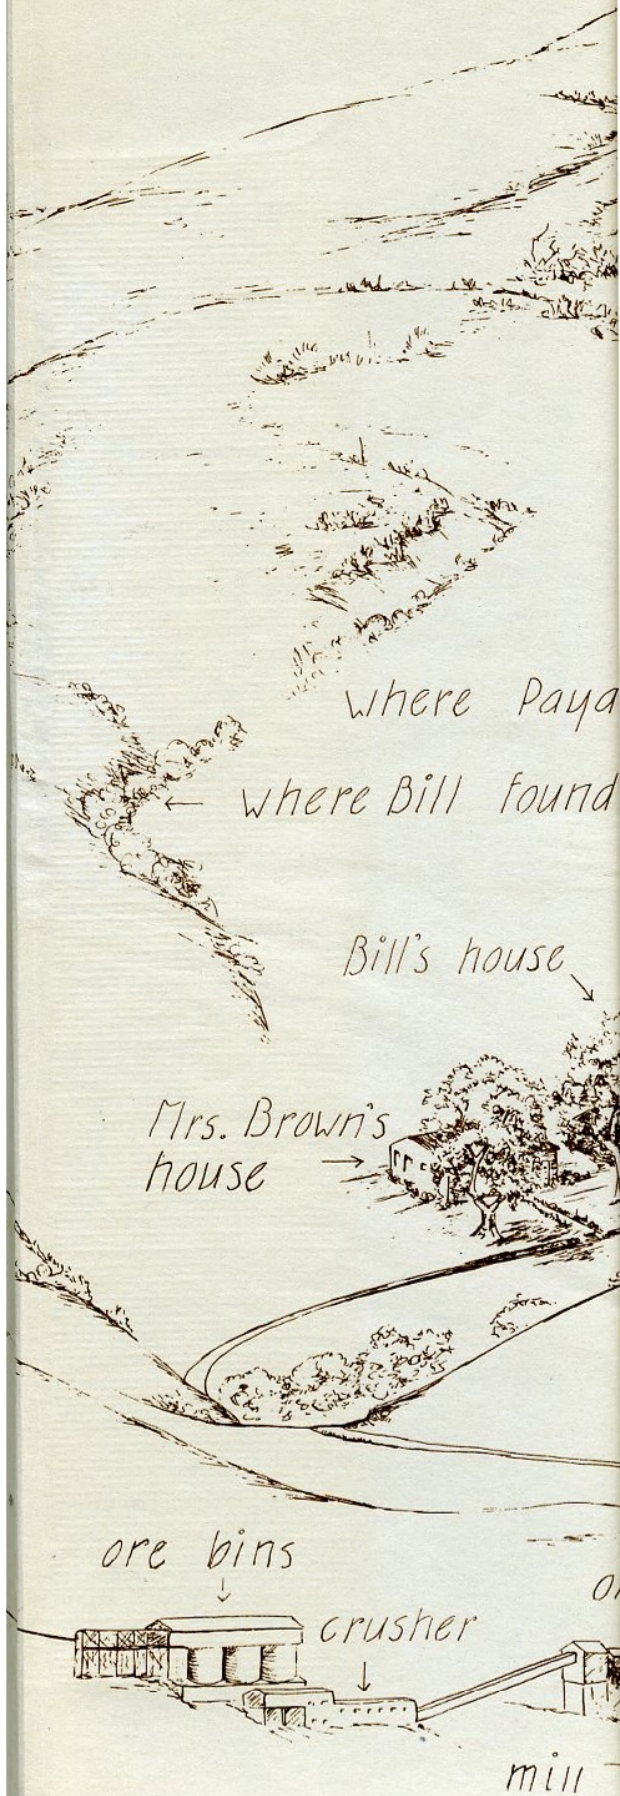 where Paya
where Bill found
Bill's house
Mrs. Brown's
house
ore bins
crusher
mill